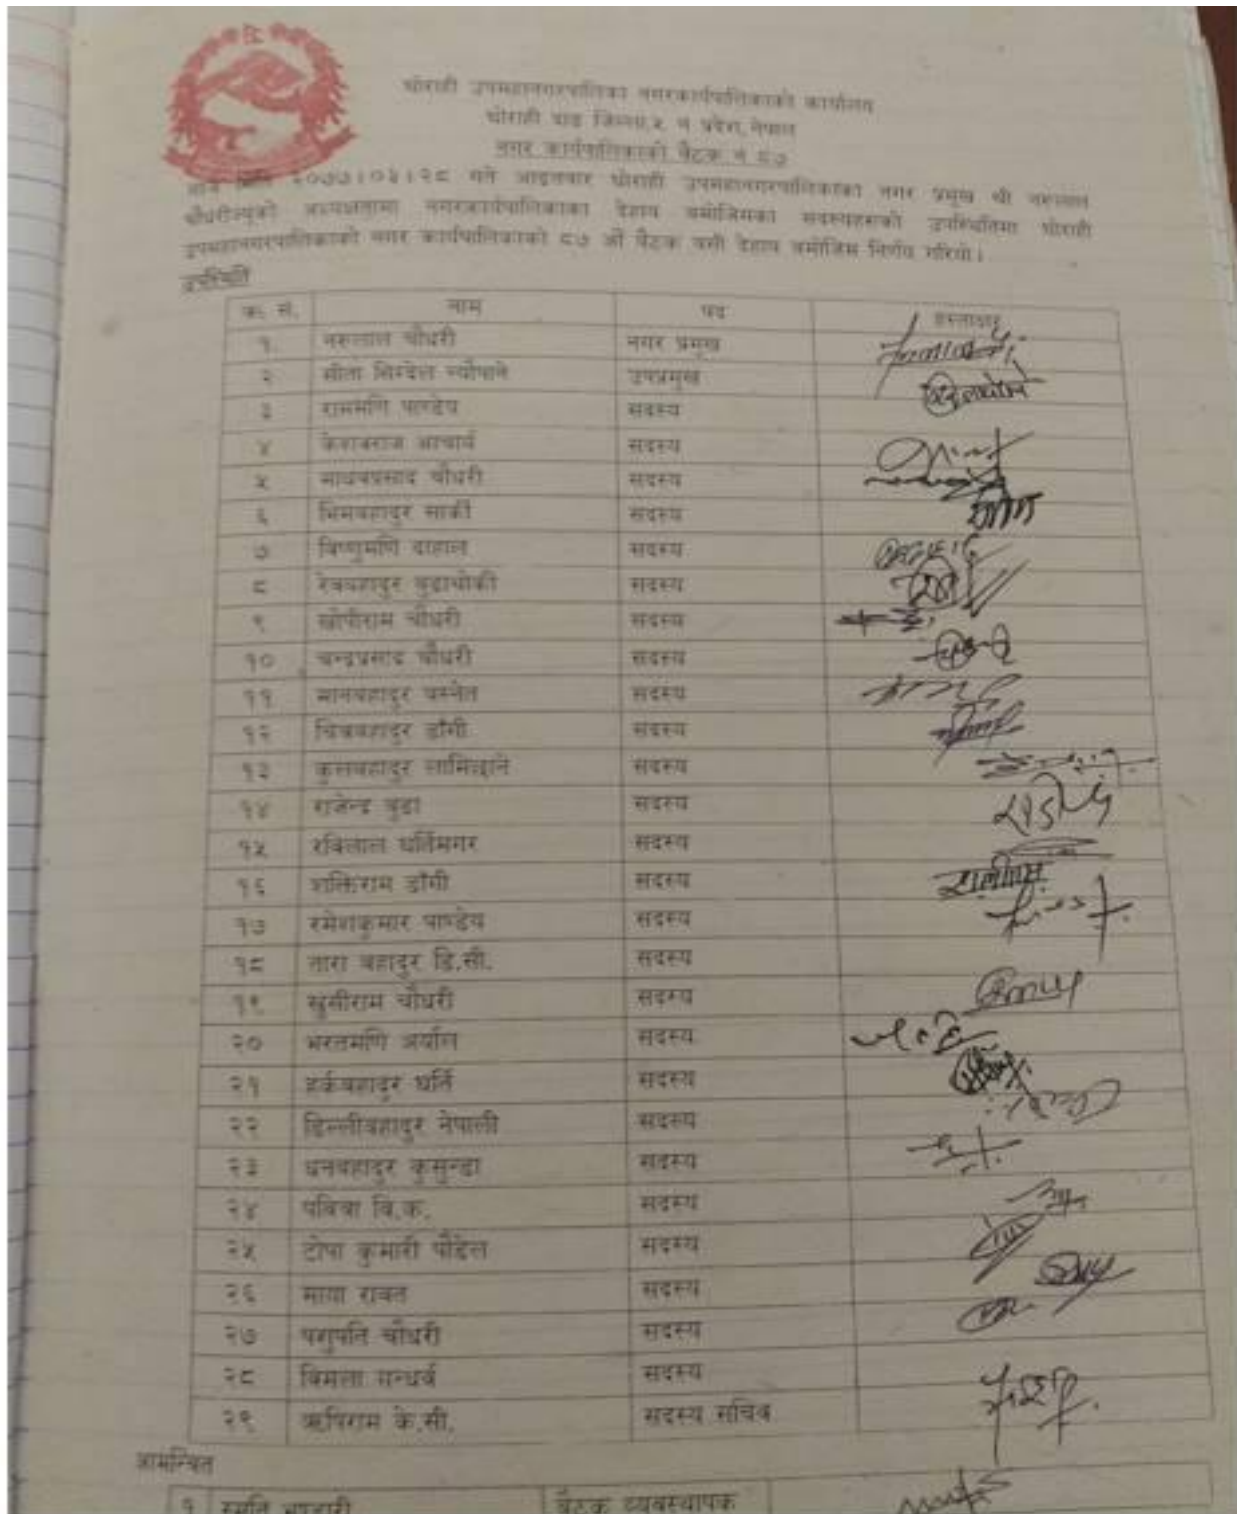 घोराही उपमहानगरपालिका नगरकार्यपालिकाको कार्यालय
घोराही दाङ जिल्ला,५ नं प्रदेश,नेपाल
नगर कार्यपालिकाको बैठक नं ८७
आज मिति २०७७।०३।२८ गते आइतवार घोराही उपमहानगरपालिकाका नगर प्रमुख श्री नरुलाल
चौधरीज्यूको अध्यक्षतामा नगरकार्यपालिकाका देहाय बमोजिमका सदस्यहरुको उपस्थितिमा घोराही
उपमहानगरपालिकाको नगर कार्यपालिकाको ८७ औं बैठक बसी देहाय बमोजिम निर्णय गरियो।
उपस्थिति
क्र. सं. नाम पद हस्ताक्षर
१. नरुलाल चौधरी नगर प्रमुख
२ सीता सिग्देल न्यौपाने उपप्रमुख
३ राममणि पाण्डेय सदस्य
४ केशवराज आचार्य सदस्य
५ माधवप्रसाद चौधरी सदस्य
६ भिमबहादुर सार्की सदस्य
७ विष्णुमणि दाहाल सदस्य
८ रेवबहादुर बुढाथोकी सदस्य
९ खोपीराम चौधरी सदस्य
१० चन्द्रप्रसाद चौधरी सदस्य
११ मानबहादुर बस्नेत सदस्य
१२ चित्रबहादुर डाँगी सदस्य
१३ कुलबहादुर लामिछाने सदस्य
१४ राजेन्द्र बुढा सदस्य
१५ रविलाल घर्तिमगर सदस्य
१६ शक्तिराम डाँगी सदस्य
१७ रमेशकुमार पाण्डेय सदस्य
१८ तारा बहादुर डि.सी. सदस्य
१९ खुसीराम चौधरी सदस्य
२० भरतमणि अर्याल सदस्य
२१ हर्कबहादुर घर्ति सदस्य
२२ डिल्लीबहादुर नेपाली सदस्य
२३ धनबहादुर कुसुन्डा सदस्य
२४ पवित्रा वि.क. सदस्य
२५ टोपा कुमारी पौडेल सदस्य
२६ माया रावत सदस्य
२७ पशुपति चौधरी सदस्य
२८ विमला गन्धर्व सदस्य
२९ ऋषिराम के.सी. सदस्य सचिव
आमन्त्रित
१ स्मृति भण्डारी बैठक व्यवस्थापक